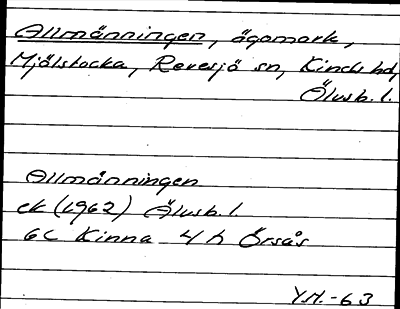 Allmänningen, ägomark,
Mjälstocka, Revesjö sn, Kinds hd,
Älvsb. l.
Allmänningen
ek (1962) Älvsb. l.
6C Kinna 4 h Örsås
Y.H.-63